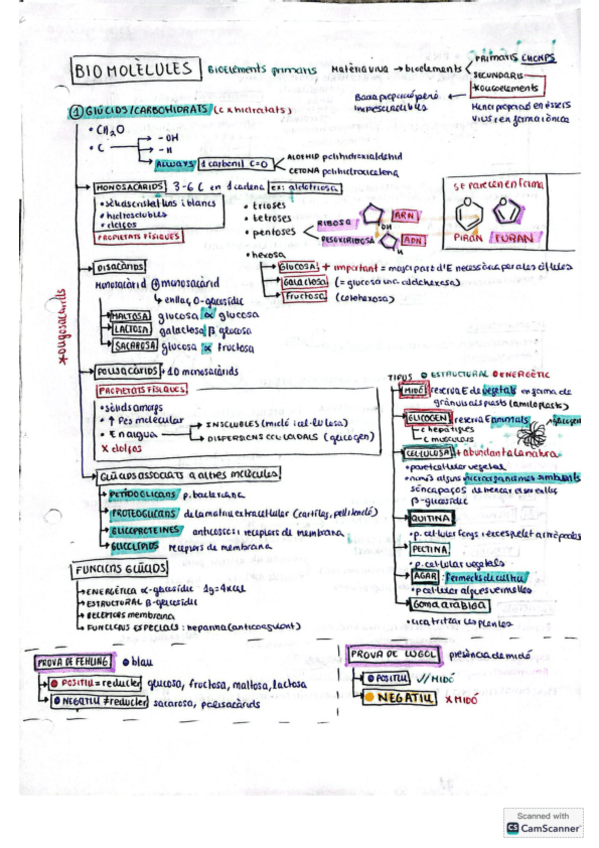 BIOMOLÈCULES
Bioelements primaris
Matèria viva → bioelements
PRIMARIS CHONPS
SECUNDARIS
*OLIGOELEMENTS
Baixa proporció però imprescindibles
Menor proporció en éssers vius i en forma iònica
① GLÚCIDS/CARBOHIDRATS (C x hidratats)
• CH₂O
• C
-OH
-H
ALWAYS 1 carbonil C=O
ALDEHID polihidroxialdehid
CETONA polihidroxicetona
MONOSACÀRIDS 3-6 C en 1 cadena ex: aldotriosa
• sòlids cristal·lins i blancs
• hidrosolubles
• dolços
PROPIETATS FÍSIQUES
• trioses
• tetroses
• pentoses
RIBOSA
ARN
DESOXIRIBOSA
ADN
OH
H
• hexosa
SE PARECEN EN FORMA
O
O
PIRAN
FURAN
GLUCOSA + important = major part d'E necessària per a les cèl·lules
Galactosa (= glucosa una aldohexosa)
Fructosa (cetohexosa)
*OLIGOSACÀRIDS
DISACÀRIDS
Monosacàrid + monosacàrid
↳ enllaç O-glucosídic
MALTOSA glucosa α glucosa
LACTOSA galactosa β glucosa
SACAROSA glucosa α fructosa
POLISACÀRIDS +10 monosacàrids
PROPIETATS FÍSIQUES
• sòlids amorfs
• ↑ Pes molecular
• En aigua
INSOLUBLES (midó i cel·lulosa)
DISPERSIONS COL·LOIDALS (glicogen)
x dolços
TIPUS ESTRUCTURAL ENERGÈTIC
MIDÓ reserva E de vegetals en forma de grànuls als plasts (amiloplasts)
GLICOGEN reserva E animals
glicogen
c hepàtiques
c musculars
CEL·LULOSA + abundant a la natura
• paret cel·lular vegetal
• només alguns microorganismes simbionts són capaços de trencar els enllaç β-glucosídic
QUITINA
• p. cel·lular fongs i exosquelet artròpodes
PECTINA
• p. cel·lular vegetales
AGAR : ferments de cultiu
• p cel·lular algues vermelles
Goma aràbiga
• cicatritzar les plantes
GLÚCIDS ASSOCIATS A ALTRES MOLÈCULES
PEPTIDOGLICANS p. bacteriana
PROTEOGLICANS de la matriu extracel·lular (cartílag, pell i tendó)
GLICOPROTEÏNES anticossos i receptors de membrana
GLICOLÍPIDS receptors de membrana
FUNCIONS GLÚCIDS
ENERGÈTICA α-glucosídic 1g=4kcal
ESTRUCTURAL β-glucosídic
RECEPTORS membrana
FUNCIONS ESPECIALS : heparina (anticoagulant)
PROVA DE FEHLING
blau
POSITIU = reductor glucosa, fructosa, maltosa, lactosa
NEGATIU ≠ reductor sacarosa, polisacàrids
PROVA DE LUGOL presència de midó
POSITIU ✓/MIDÓ
NEGATIU X MIDÓ
Scanned with
CS CamScanner